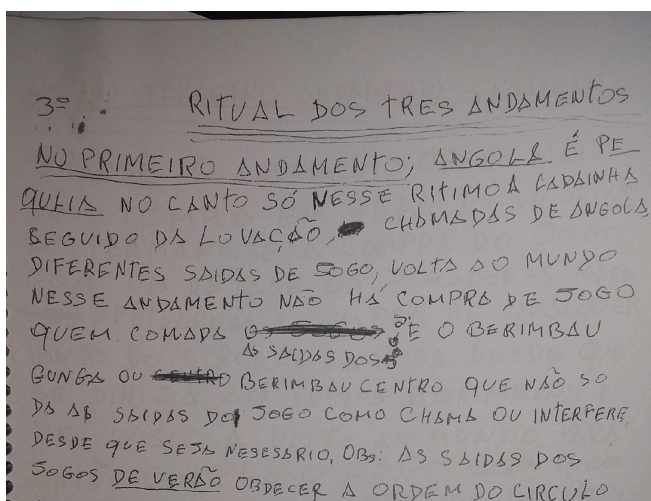 3º RITUAL DOS TRES ANDAMENTOS
NO PRIMEIRO ANDAMENTO; ANGOLA É PE
QULIA NO CANTO SÓ NESSE RITIMO A LADAINHA
SEGUIDO DA LOVAÇÃO, CHAMADAS DE ANGOLA,
DIFERENTES SAIDAS DE JOGO, VOLTA AO MUNDO
NESSE ANDAMENTO NÃO HÁ COMPRA DE JOGO
QUEM COMADA É O BERIMBAU
AS SAIDAS DOS JOGOS
GUNGA OU BERIMBAU CENTRO QUE NÃO SO
DA AS SAIDAS DO JOGO COMO CHAMA OU INTERFERE
DESDE QUE SEJA NESESSARIO, OBS: AS SAIDAS DOS
JOGOS DE VERÃO OBDECER A ORDEM DO CIRCULO